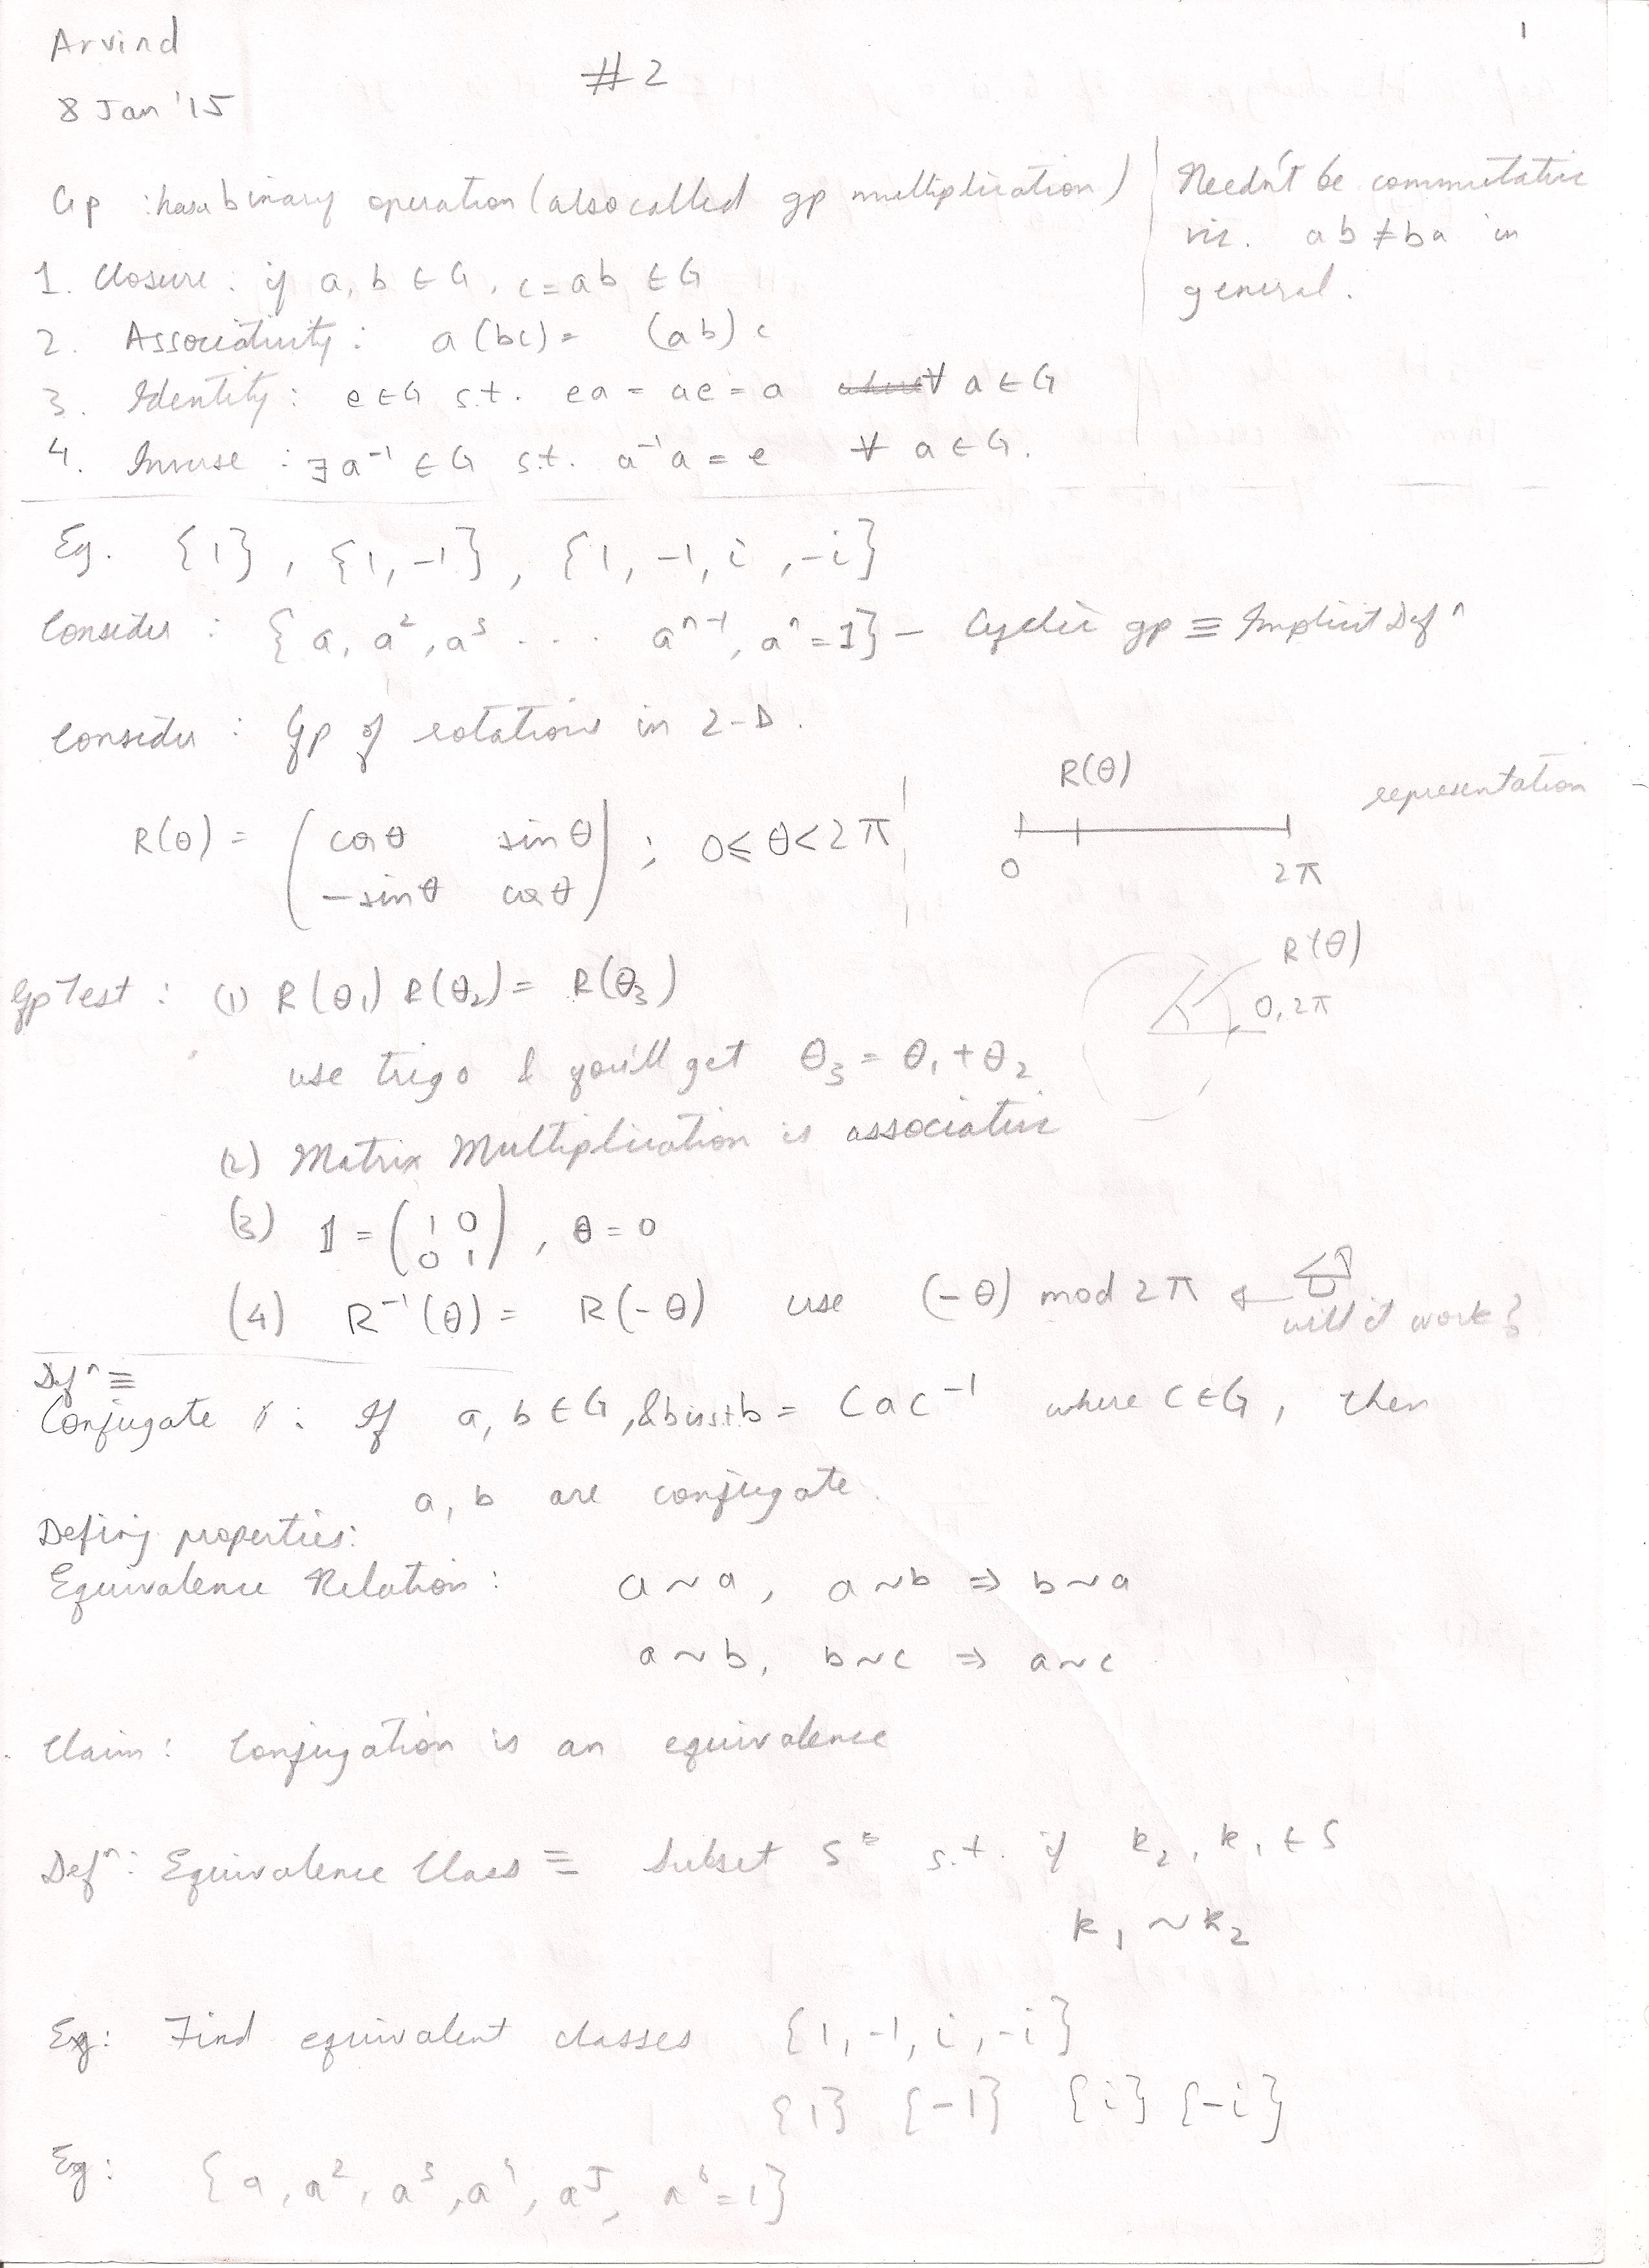 Arvind
1
#2
8 Jan '15
Gp : has a binary operation (also called gp multiplication)
Needn't be commutative
viz. ab ≠ ba in
general.
1. Closure : if a, b ∈ G, c = ab ∈ G
2. Associativity : a(bc) = (ab)c
3. Identity : e ∈ G s.t. ea = ae = a ∀ a ∈ G
4. Inverse : ∃ a⁻¹ ∈ G s.t. a⁻¹a = e ∀ a ∈ G.
Eg. {1}, {1, -1}, {1, -1, i, -i}
Consider : {a, a², a³ .... aⁿ⁻¹, aⁿ = 1} – Cyclic gp ≡ Implicit Defⁿ
Consider : Gp of rotations in 2-D.
R(θ) = ( cosθ sinθ
-sinθ cosθ ) ; 0 ≤ θ < 2π
R(θ)
representation
0 2π
R(θ)
0, 2π
Gp Test : (1) R(θ₁) R(θ₂) = R(θ₃)
use trigo & you'll get θ₃ = θ₁ + θ₂
(2) Matrix Multiplication is associative
(3) 𝟙 = ( 1 0
0 1 ), θ = 0
(4) R⁻¹(θ) = R(-θ) use (-θ) mod 2π ←
will it work?
Defⁿ ≡
Conjugate : If a, b ∈ G, & b is s.t. b = cac⁻¹ where c ∈ G, then
a, b are conjugate.
Defing properties:
Equivalence Relation : a ~ a, a ~ b ⇒ b ~ a
a ~ b, b ~ c ⇒ a ~ c
Claim : Conjugation is an equivalence
Defⁿ: Equivalence Class ≡ Subset S s.t. if k₂, k₁ ∈ S
k₁ ~ k₂
Eg: Find equivalent classes {1, -1, i, -i}
{1} {-1} {i} {-i}
Eg: {a, a², a³, a⁴, a⁵, a⁶ = 1}